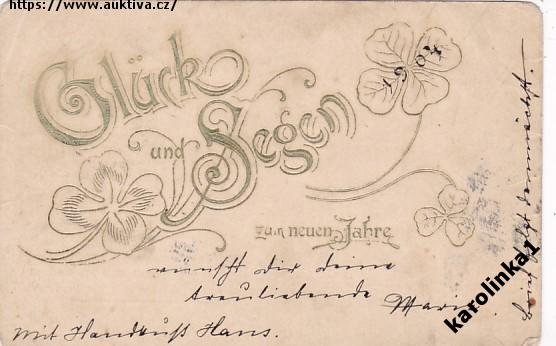 https://www.auktiva.cz/
Glück
und Segen
1904
zum neuen Jahre
wünscht dir deine
treuliebende Marie
Mit Handkuß Hans.
Brief folgt demnächst.
karolinka1